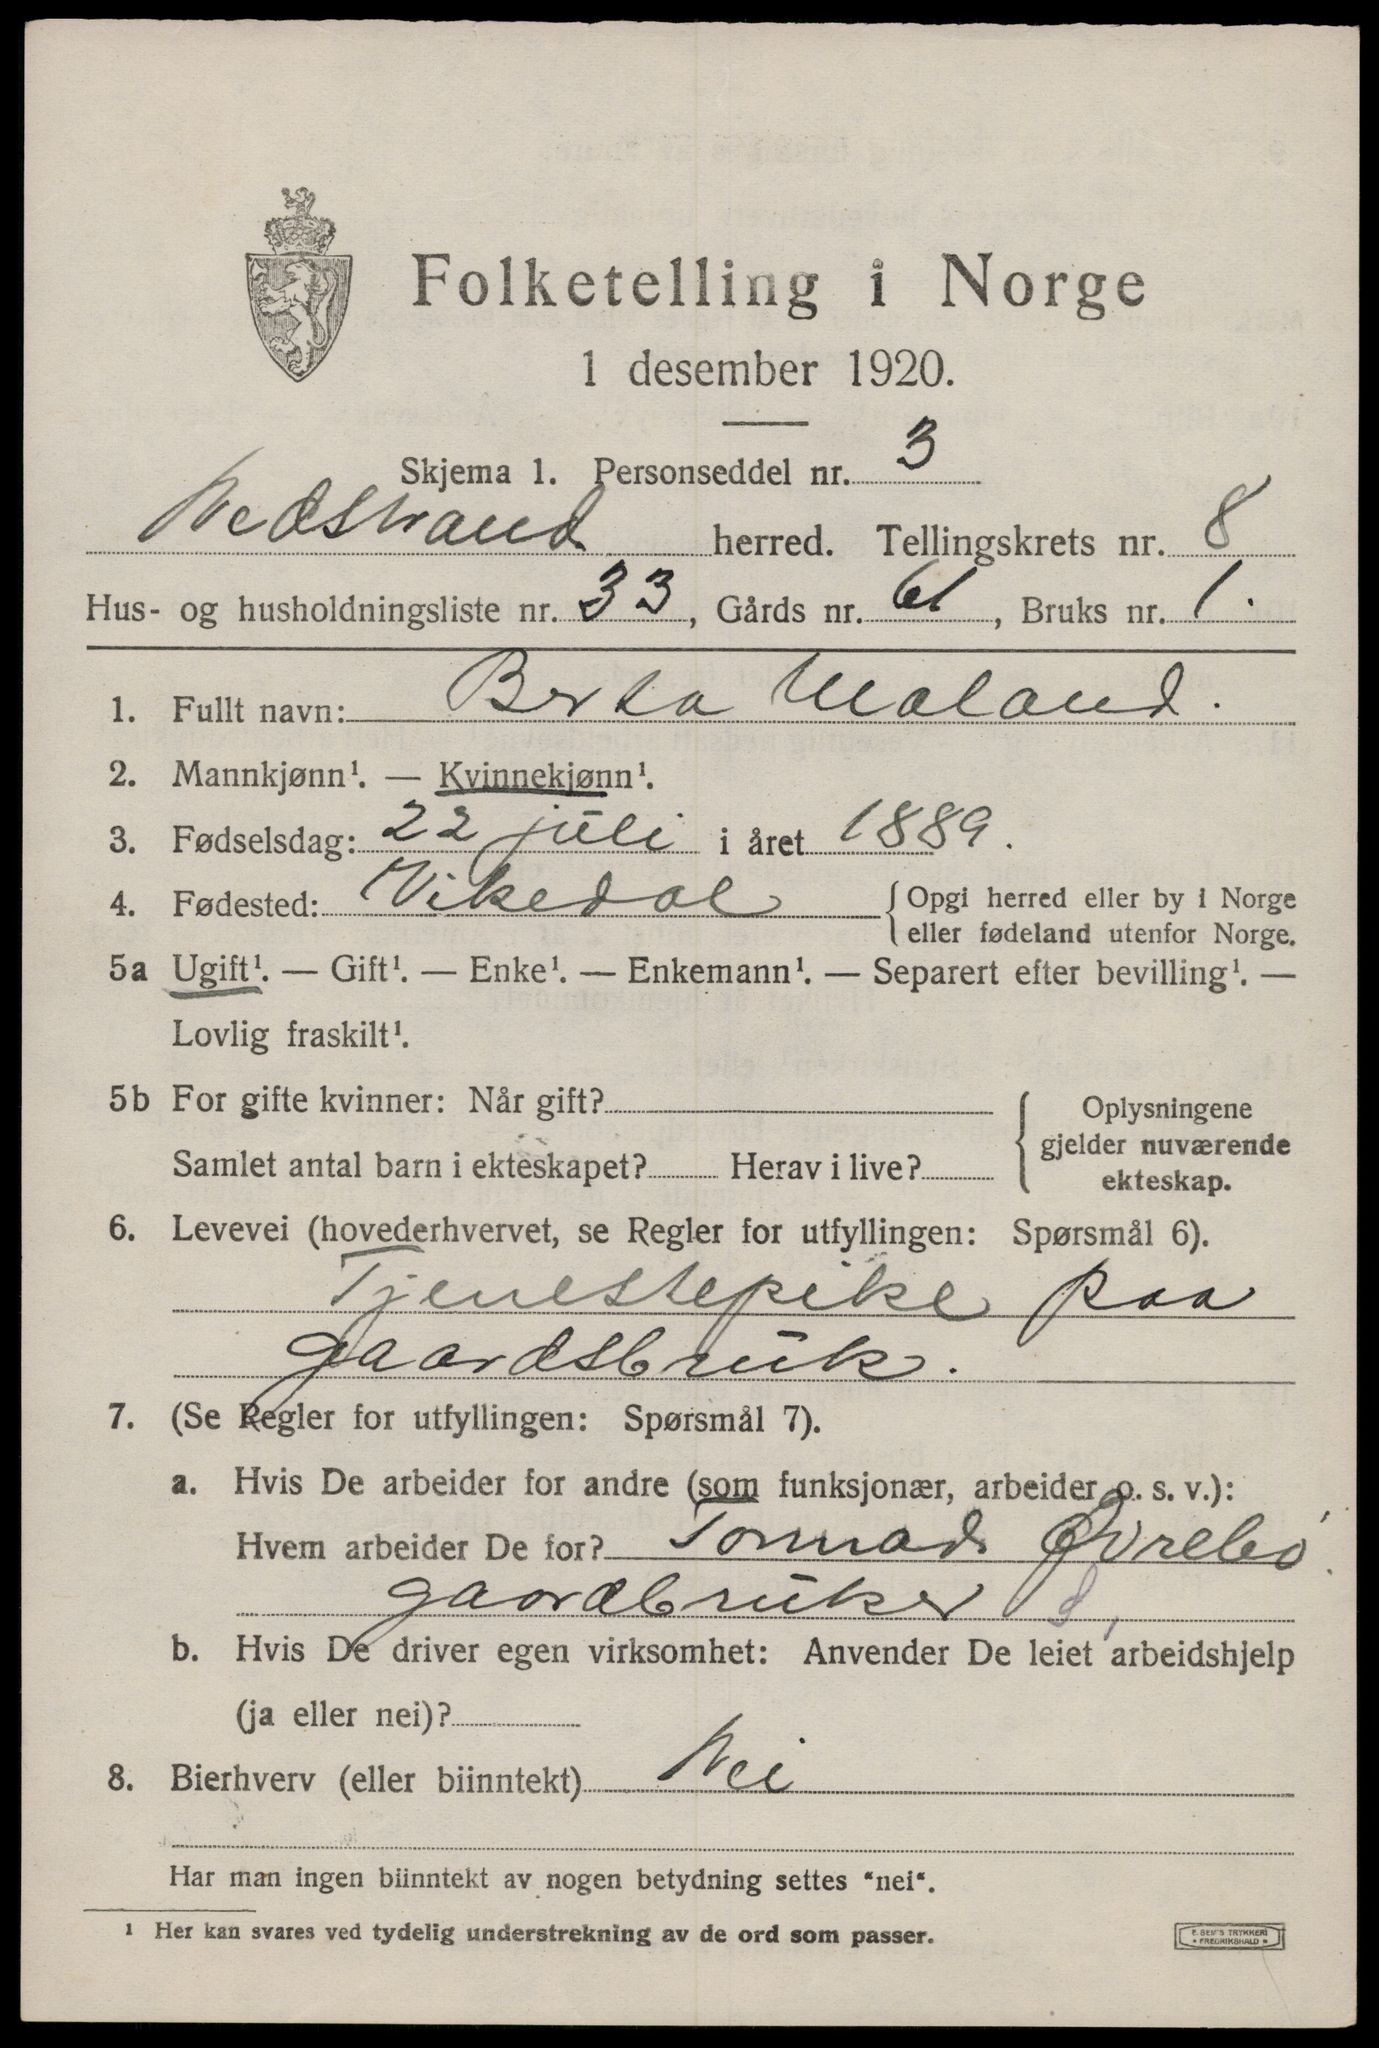 Folketelling i Norge
1 desember 1920.
Skjema 1. Personseddel nr. 3
Nedstrand herred. Tellingskrets nr. 8
Hus- og husholdningsliste nr. 33, Gårds nr. 61, Bruks nr. 1.
1. Fullt navn: Berta Maland.
2. Mannkjønn¹. — Kvinnekjønn¹.
3. Fødselsdag: 22 juli i året 1889.
4. Fødested: Vikedal {Opgi herred eller by i Norge
eller fødeland utenfor Norge.
5a Ugift¹. — Gift¹. — Enke¹. — Enkemann¹. — Separert efter bevilling¹. —
Lovlig fraskilt¹.
5b For gifte kvinner: Når gift? { Oplysningene
gjelder nuværende
Samlet antal barn i ekteskapet? Herav i live? ekteskap.
6. Levevei (hovederhvervet, se Regler for utfyllingen: Spørsmål 6).
Tjenestepike paa
gaardsbruk.
7. (Se Regler for utfyllingen: Spørsmål 7).
a. Hvis De arbeider for andre (som funksjonær, arbeider o. s. v.):
Hvem arbeider De for? Tormod Øvrebö
gaardbruker
b. Hvis De driver egen virksomhet: Anvender De leiet arbeidshjelp
(ja eller nei)?
8. Bierhverv (eller biinntekt) Nei
Har man ingen biinntekt av nogen betydning settes "nei".
¹ Her kan svares ved tydelig understrekning av de ord som passer.
E. SEM'S TRYKKERI
* FREDRIKSHALD *